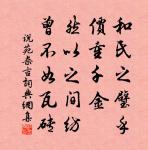 和氏之璧
價重千金
然以之间纺
曾不如瓦砖
说苑杂言詞典網集